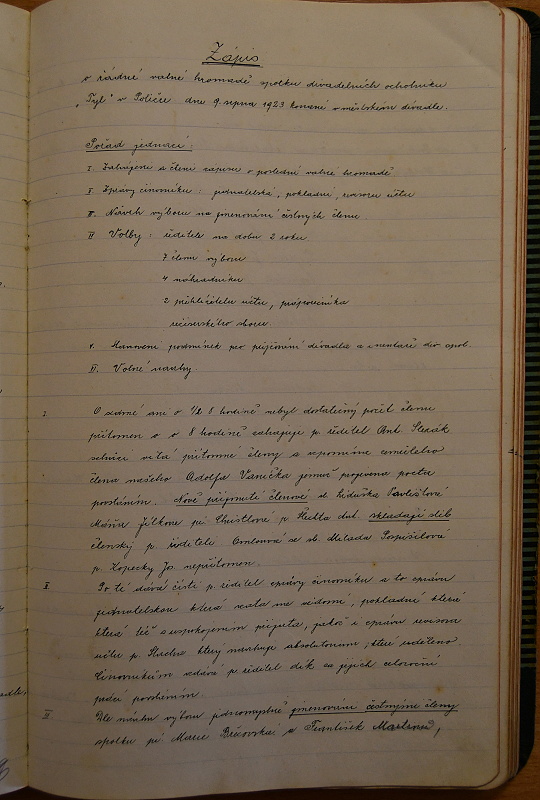 Zápis
o řádné valné hromadě spolku divadelních ochotníků
„Tyl“ v Poličce dne 9. srpna 1923 konané v městském divadle.
Pořad jednací:
I. Zahájení a čtení zápisu o poslední valné hromadě
II. Zprávy činovníků: jednatelská, pokladní, revisorů účtů
III. Návrh výboru na jmenování čestných členů
IV Volby: ředitele na dobu 2 roků
7 členů výboru
4 náhradníků
2 přehlížitelů účtů, praporečníka
V. Stanovení podmínek pro půjčování divadla a inventáře div. spol.
VI. Volné návrhy.
I. O 1/2 8 hodině nebyl dostatečný počet členů
přítomen a o 8 hodině zahajuje p. ředitel Ant. Slezák
schůzi vítá přítomné členy a vzpomíná zemřelého
člena našeho Adolfa Vaníčka jemuž projevena pocta
povstáním. Nově přijmutí členové sl. Liduška Pavlištová
Márin Jílkova pí Christlová p. skládají slib
členský p. řediteli. a sl. Milada Pospíšilová
p. Kopecký Jos. nepřítomen.
II. Po té dává čísti p. ředitel zprávy činovníků a to zprávu
jednatelskou která vzata na vědomí, pokladní
která též s uspokojením přijata, jakož i zpráva revisorů
účtů p. který navrhuje absolutorium, které uděleno
činovníkům vzdává p. ředitel dík za jejich celoroční
práci povstáním.
III Dle návrhu výboru jednomyslně jmenováni čestnými členy
spolku pí Marie a František